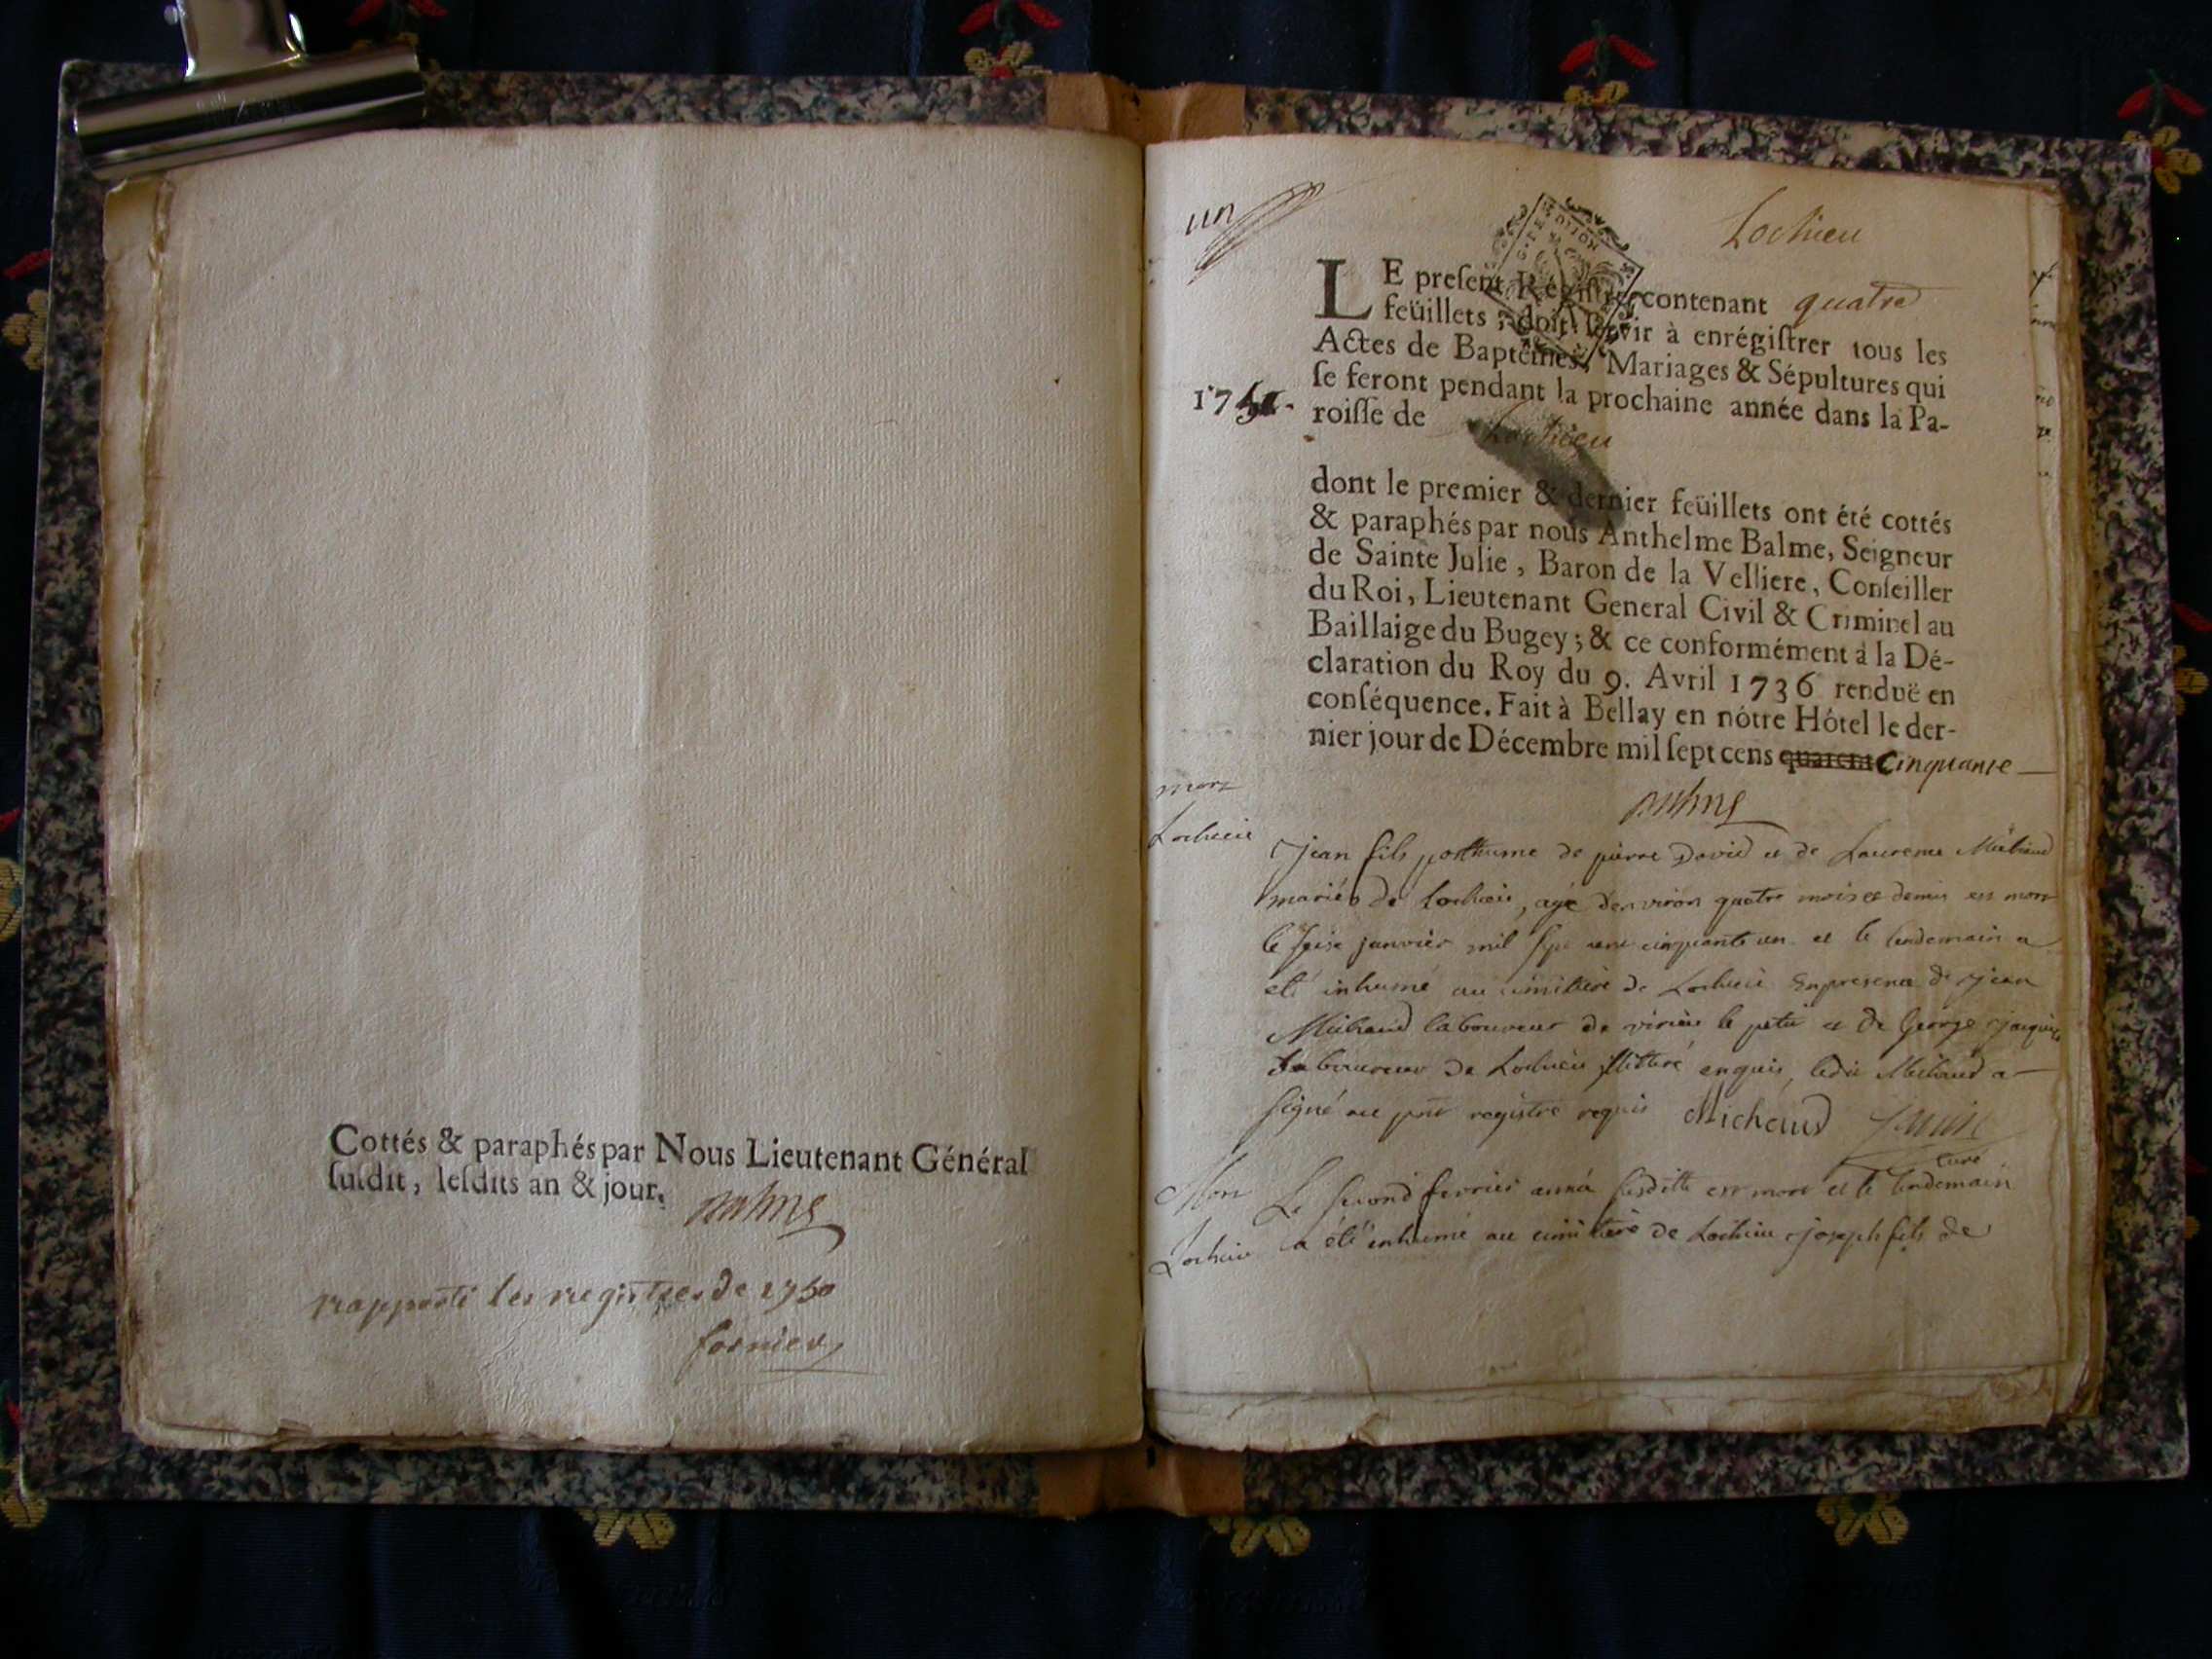 Cottés & paraphés par Nous Lieutenant Général
susdit, lesdits an & jour.
rapporté les registres de 1750
fornier
un
Lochieu
LE present Régistre contenant quatre
feüillets, doit servir à enrégistrer tous les
Actes de Baptêmes, Mariages & Sépultures qui
se feront pendant la prochaine année dans la Pa-
1751.
roisse de Lochieu
dont le premier & dernier feüillets ont été cottés
& paraphés par nous Anthelme Balme, Seigneur
de Sainte Julie, Baron de la Velliere, Conseiller
du Roi, Lieutenant General Civil & Criminel au
Baillaige du Bugey; & ce conformément à la Dé-
claration du Roy du 9. Avril 1736 renduë en
conséquence. Fait à Bellay en nôtre Hôtel le der-
nier jour de Décembre mil sept cens quarent Cinquante
mort
Lochieu
Jean fils posthume de pierre David et de Laurence Michaud
mariés de Lochieu, agé denviron quatre mois et demis est mort
le janvier mil sept cent cinquante un et le lendemain a
eté inhumé au cimitiere de Lochieu en presence de Jean
Michaud laboureur de virieu le petit et de George Jacquin
laboureur de Lochieu illitteré enquis, ledit Michaud a
signé au pnt registre requis Michaud
curé
Mort
Lochieu
Le second fevrier année susditte est mort et le lendemain
a été inhumé au cimitiere de Lochieu joseph fils de